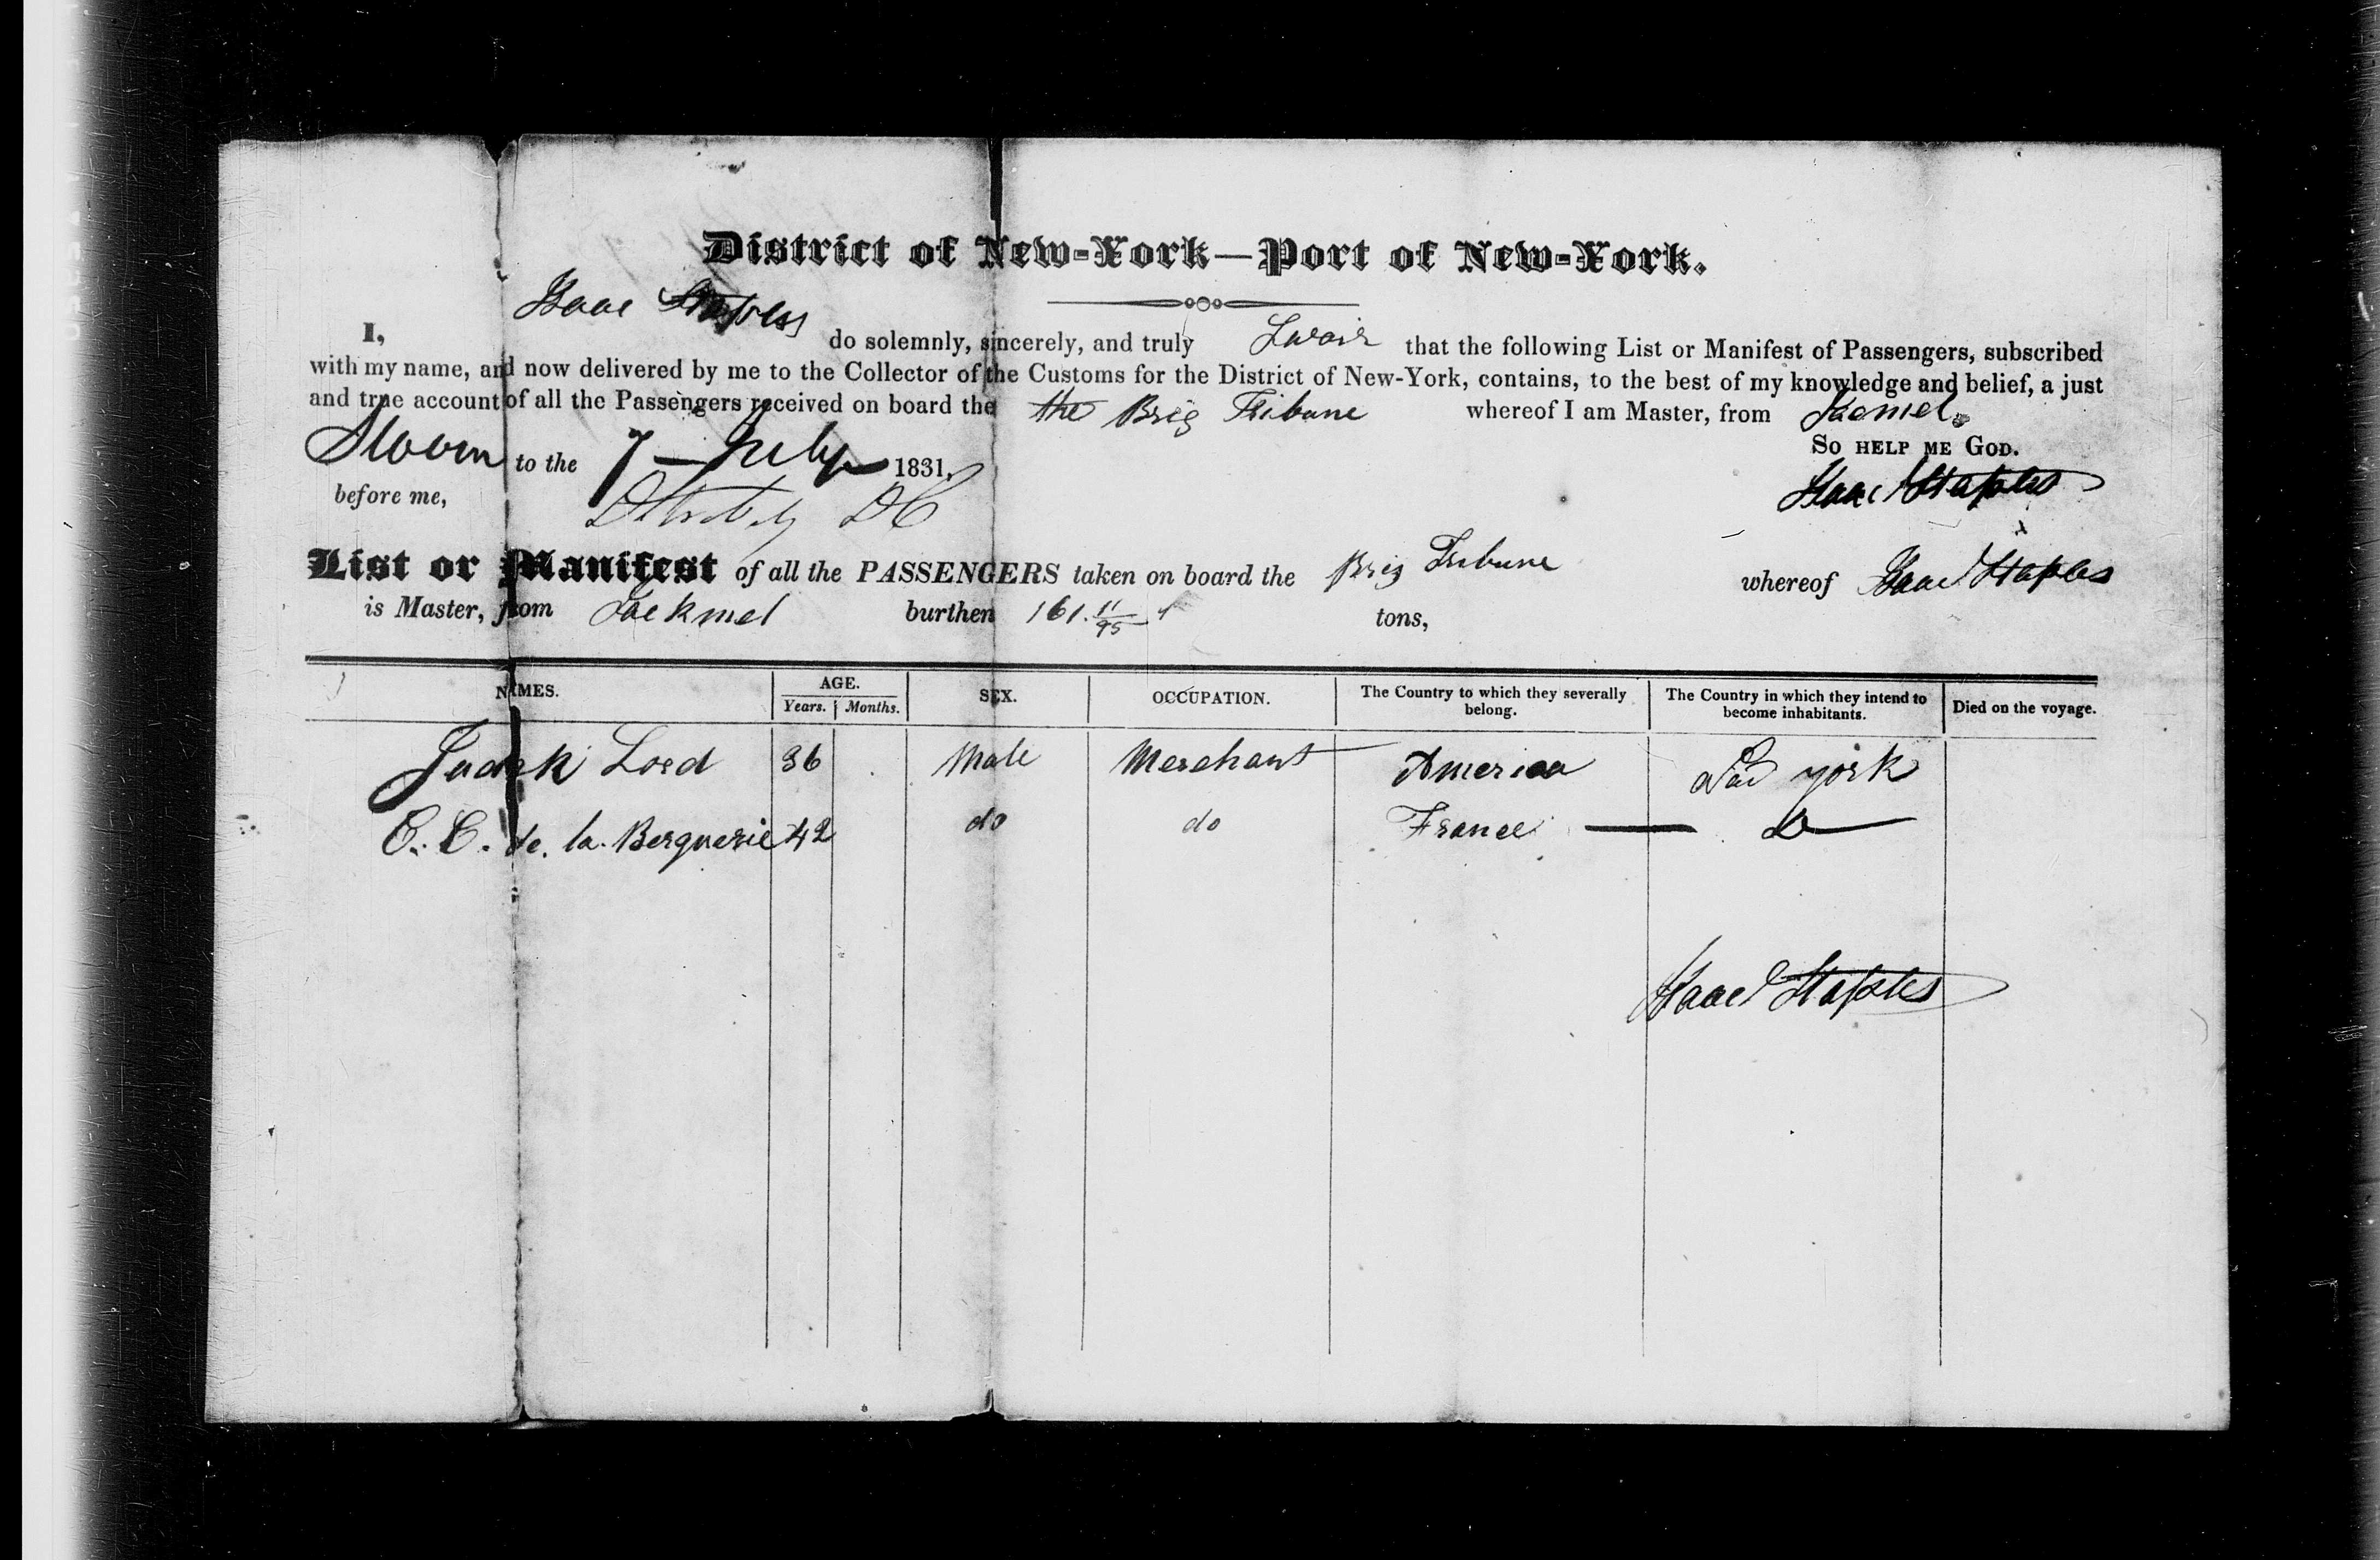 District of New-York—Port of New-York.
Isaac Staples
I, do solemnly, sincerely, and truly Swair that the following List or Manifest of Passengers, subscribed
with my name, and now delivered by me to the Collector of the Customs for the District of New-York, contains, to the best of my knowledge and belief, a just
and true account of all the Passengers received on board the the Brig Tribune whereof I am Master, from Jacmel.
So help me God.
Sworn to the 7 — July 1831,
Isaac Staples
before me,
List or Manifest of all the PASSENGERS taken on board the Brig Tribune whereof Isaac Staples
is Master, from Jackmel burthen 161. 11/95 tons,
NAMES. AGE. SEX. OCCUPATION. The Country to which they severally belong. The Country in which they intend to become inhabitants. Died on the voyage.
Years. Months.
Lord 36 Male Merchant America york
C. C. de. la. Berquerie 42 do do France — Do —
Isaac Staples